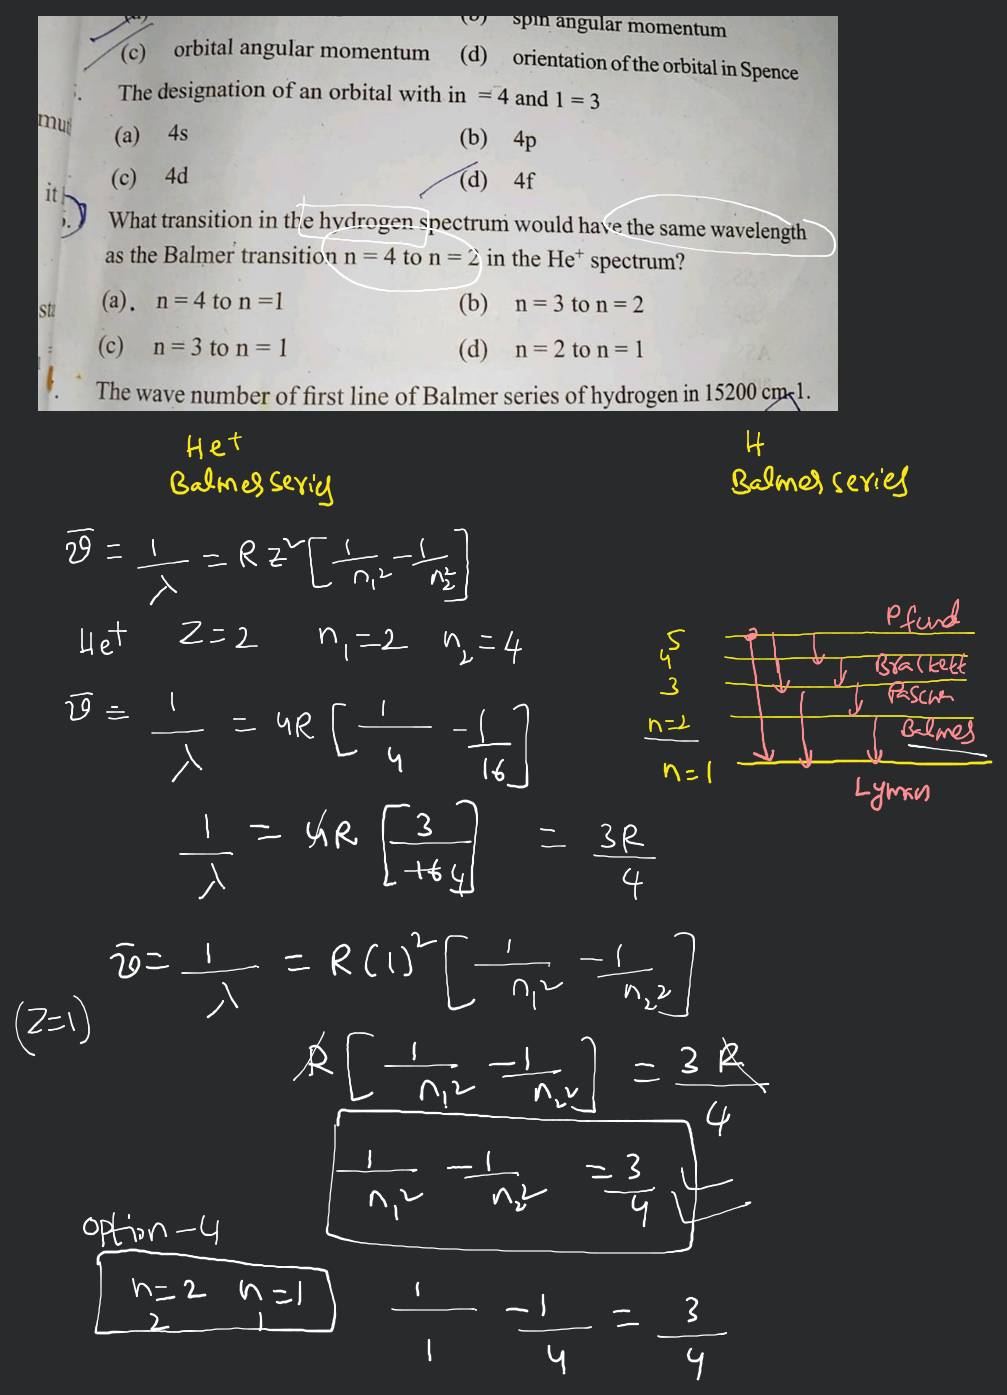 spin angular momentum
(c) orbital angular momentum (d) orientation of the orbital in Spence
The designation of an orbital with in = 4 and 1 = 3
mut
(a) 4s (b) 4p
(c) 4d (d) 4f
it
What transition in the hydrogen spectrum would have the same wavelength
as the Balmer transition n = 4 to n = 2 in the He⁺ spectrum?
(a). n = 4 to n =1 (b) n = 3 to n = 2
(c) n = 3 to n = 1 (d) n = 2 to n = 1
The wave number of first line of Balmer series of hydrogen in 15200 cm-1.
He+ H
Balmer series Balmer series
ν̄ = 1/λ = R Z² [1/n₁² - 1/n₂²]
He+ Z=2 n₁=2 n₂=4
ν̄ = 1/λ = 4R [1/4 - 1/16]
5 Pfund
4 Brackett
3 Paschen
n=2 Balmer
n=1
Lyman
1/λ = 4R [3/16 4] = 3R/4
ν̄ = 1/λ = R(1)² [1/n₁² - 1/n₂²]
(Z=1)
R [1/n₁² - 1/n₂²] = 3R/4
1/n₁² - 1/n₂² = 3/4
option-4
n₂=2 n₁=1
1/1 - 1/4 = 3/4